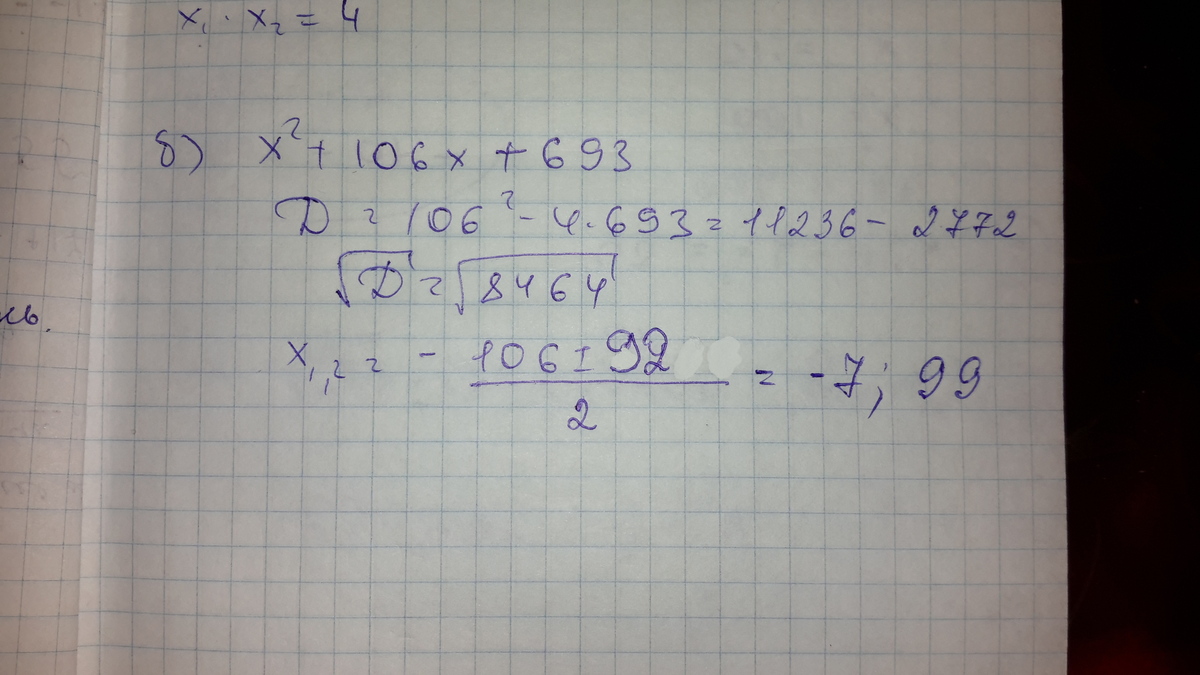 x₁ · x₂ = 4
б) x² + 106x + 693
D = 106² - 4·693 = 11236 - 2772
√D = √8464
x₁,₂ = - 106 ± 92 / 2 = -7; 99
нь.